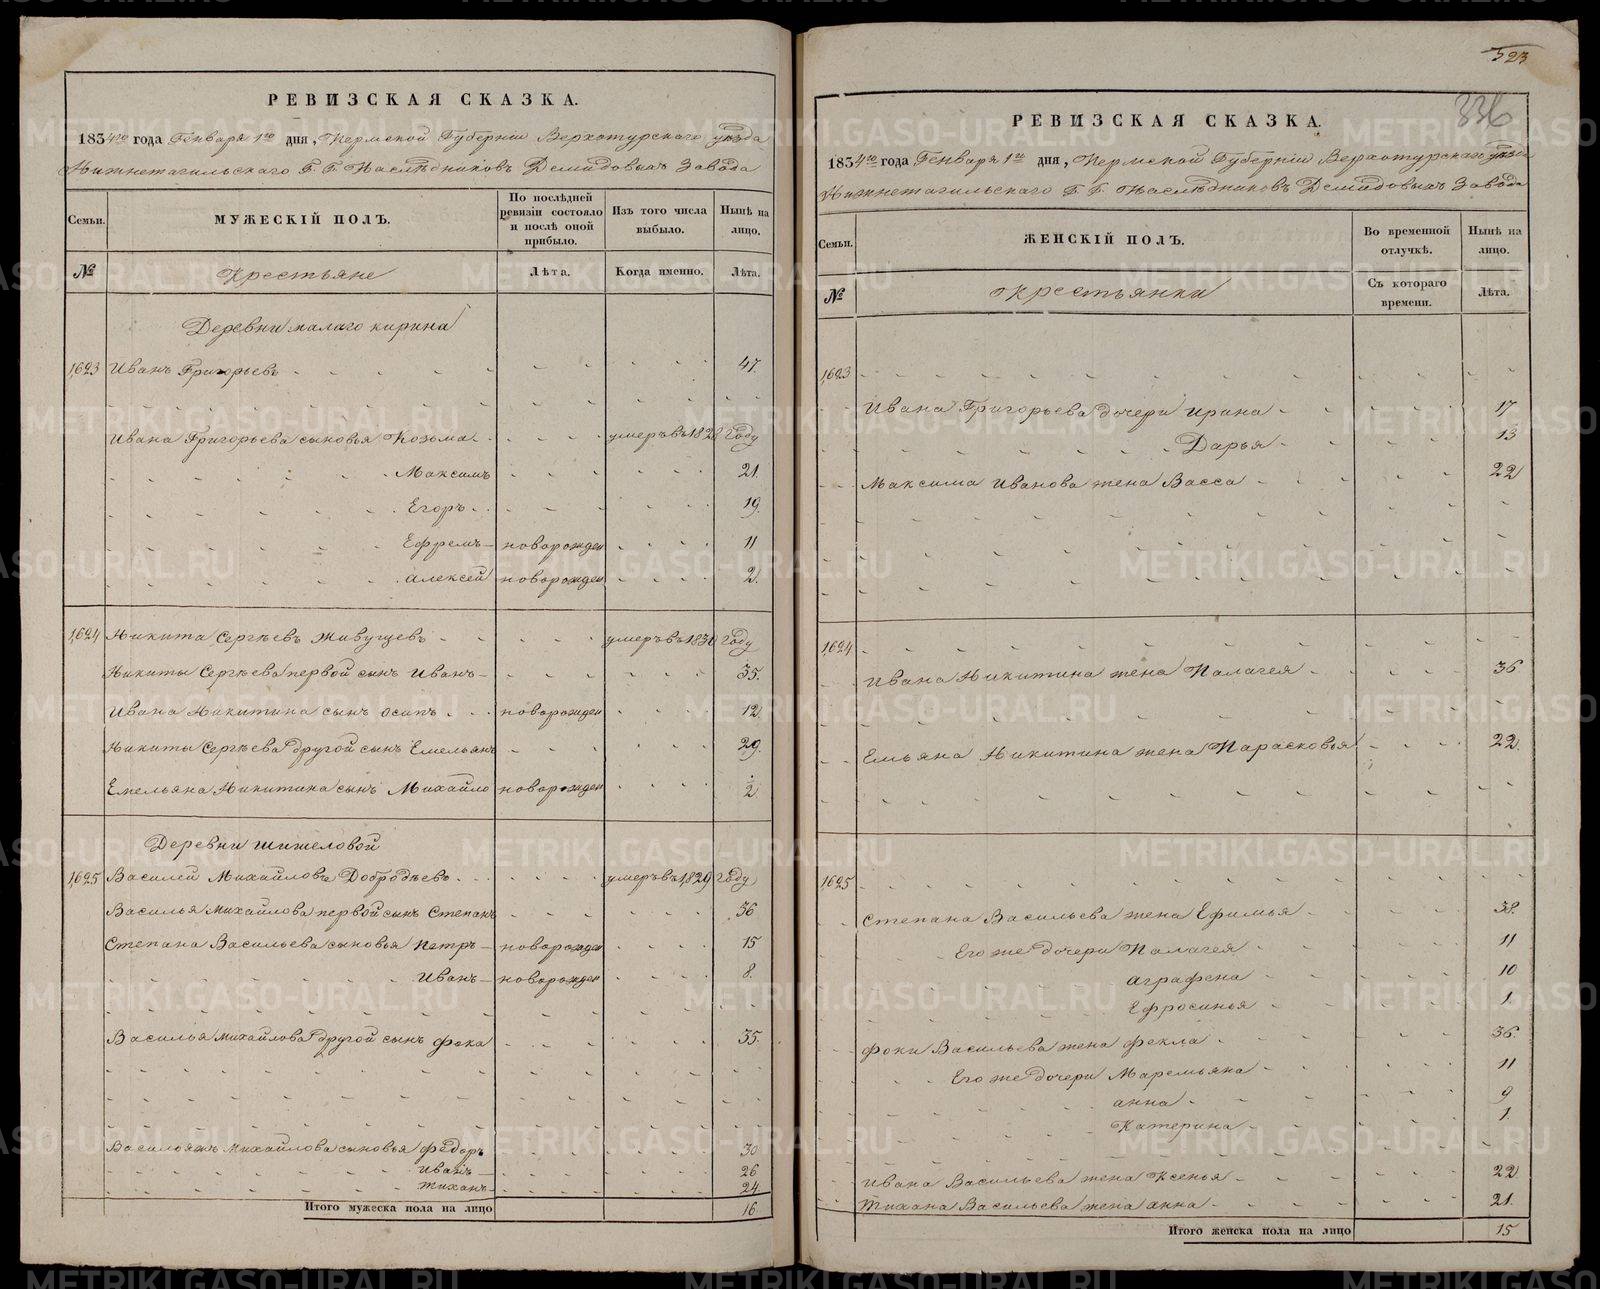 РЕВИЗСКАЯ СКАЗКА.
1834го года Генваря 1го дня, Пермской Губерніи Верхотурскаго уѣзда
Нижнетагильскаго Г. Г. Наслѣдниковъ Демидовыхъ Завода
Семьи.
МУЖЕСКІЙ ПОЛЪ.
По послѣдней ревизіи состояло и послѣ оной прибыло.
Изъ того числа выбыло.
Нынѣ на лицо.
№
Крестьяне
Лѣта.
Когда именно.
Лѣта.
Деревни малаго кирина
1623 Иванъ Григорьевъ 47.
Ивана Григорьева сыновья Козьма умеръ въ 1828 году
Максимъ 21.
Егоръ 19.
Ефремъ новорожден 11
Алексей новорожден 2.
1624 Никита Сергѣевъ Живущевъ умеръ въ 1830 году
Никиты Сергѣева первой сынъ Иванъ 35.
Ивана Никитина сынъ Осипъ новорожден 12.
Никиты Сергѣева другой сынъ Емельянъ 29.
Емельяна Никитина сынъ Михайло новорожден 2.
Деревни шишеловой
1625 Василей Михайловъ Добродѣевъ умеръ въ 1829 году
Василья Михайлова первой сынъ Степанъ 36
Степана Васильева сыновья Петръ новорожден 15
Иванъ новорожден 8.
Василья Михайлова другой сынъ Фока 35.
Михайлова сыновья Федоръ 30
Иванъ 26
Тиханъ 24
Итого мужеска пола на лицо 16.
523
336
РЕВИЗСКАЯ СКАЗКА.
1834го года Генваря 1го дня, Пермской Губерніи Верхотурскаго уѣзда
Нижнетагильскаго Г. Г. Наслѣдниковъ Демидовыхъ Завода
Семьи.
ЖЕНСКІЙ ПОЛЪ.
Во временной отлучкѣ.
Нынѣ на лицо.
№
крестьянки
Съ котораго времени.
Лѣта.
1623
Ивана Григорьева дочери Ирина 17
Дарья 13
Максима Иванова жена Васса 22
1624
Ивана Никитина жена Палагея 36
Емьяна Никитина жена Парасковья 22.
1625
Степана Васильева жена Ефимья 38.
Его же дочери Палагея 11
Аграфена 10
Ефросинья 1.
Фоки Васильева жена Фекла 36.
Его же дочери Маремьяна 11
Анна 9
Катерина 1.
Ивана Васильева жена Ксенья 22
Тихана Васильева жена Анна 21.
Итого женска пола на лицо 15
METRIKI.GASO-URAL.RU